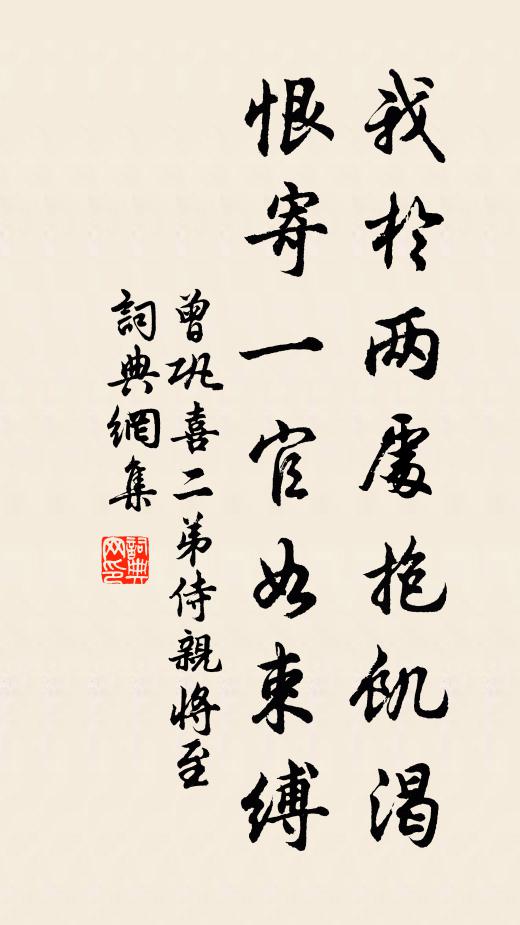 我於兩處抱飢渴
恨寄一官如束縛
曾巩喜二弟侍親將至
詞典網集
詞典网印